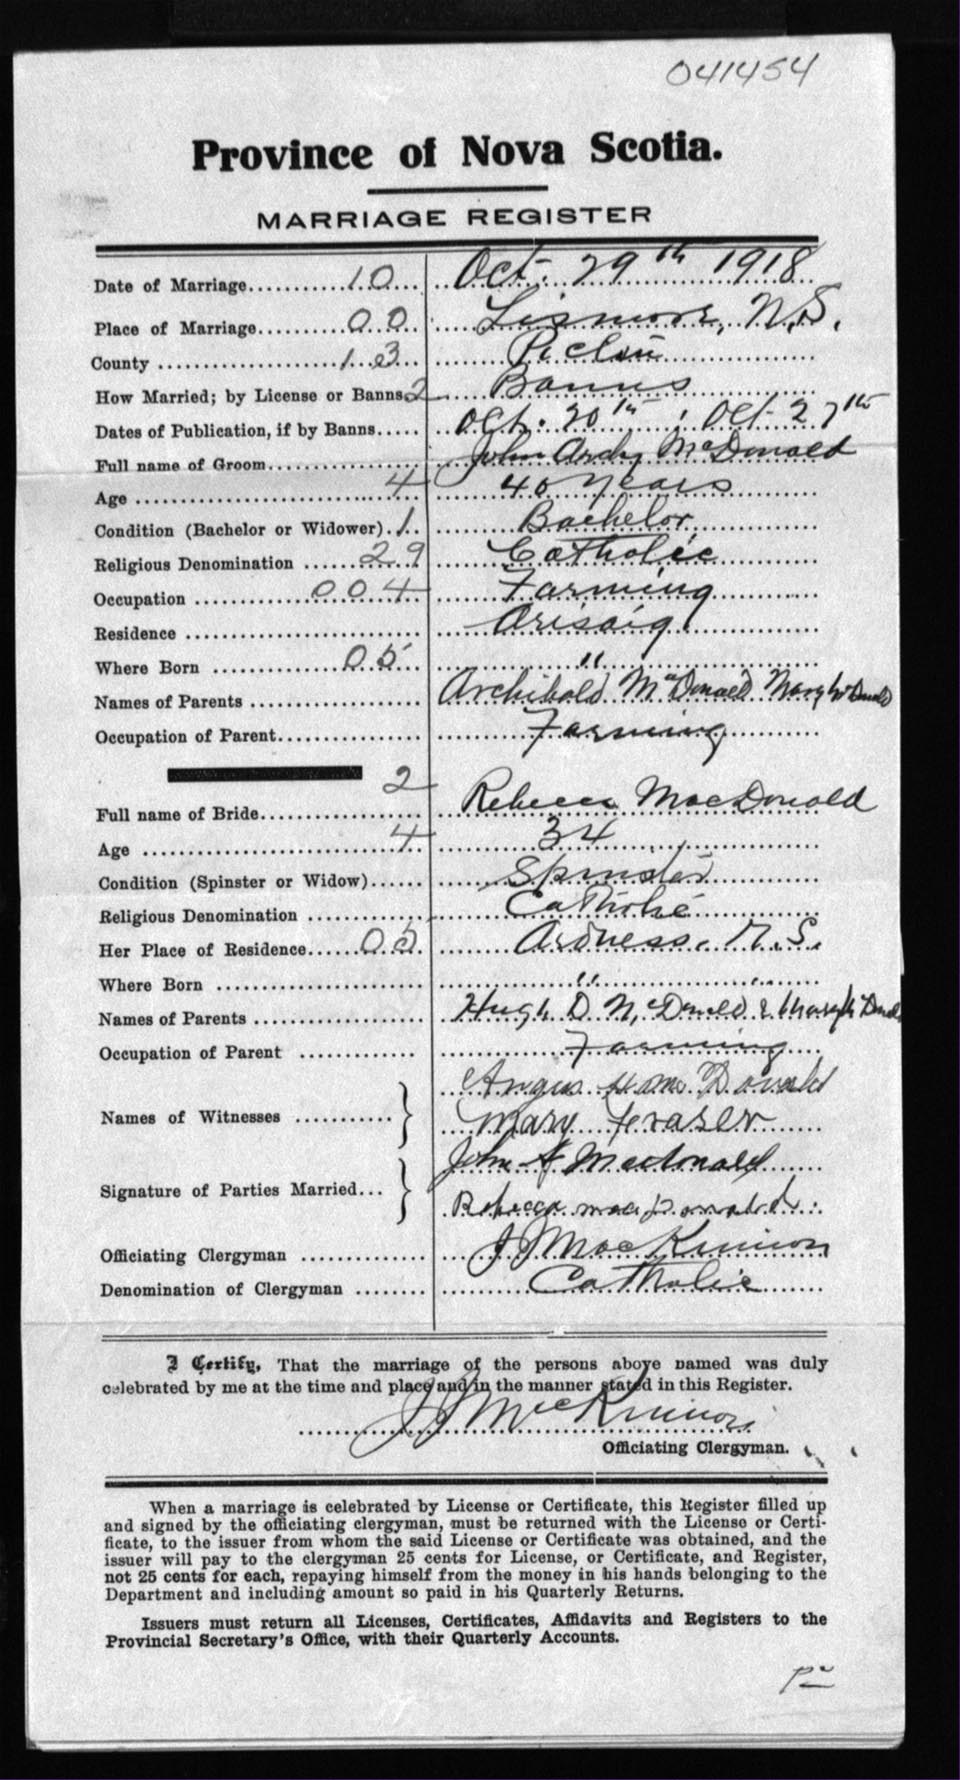 041454
Province of Nova Scotia.
MARRIAGE REGISTER
Date of Marriage..........10... Oct. 29th 1918
Place of Marriage.......00.. Lismore, N.S.
County ....................1.3... Pictou
How Married; by License or Banns.2 Banns
Dates of Publication, if by Banns..... Oct. 20th, Oct 27th
Full name of Groom................ John Archy McDonald
Age ............................4 40 years
Condition (Bachelor or Widower).1. Bachelor
Religious Denomination ......29 Catholic
Occupation ............004 Farming
Residence ........................... Arisaig
Where Born .............05.. "
Names of Parents .................... Archibald McDonald Mary McDonald
Occupation of Parent................. Farming
2
Full name of Bride................... Rebecca MacDonald
Age ............................4 34
Condition (Spinster or Widow)...... Spinster
Religious Denomination ............ Catholic
Her Place of Residence......05. Ardness. N.S.
Where Born ........................ "
Names of Parents .................... Hugh D McDonald &
Occupation of Parent ............ Farming
Names of Witnesses ........... } Angus McDonald
Mary Fraser
Signature of Parties Married... } John A Macdonald
Rebecca macdonald
Officiating Clergyman ............. J J MacKinnon
Denomination of Clergyman ........ Catholic
I Certify, That the marriage of the persons above named was duly
celebrated by me at the time and place and in the manner stated in this Register.
J J MacKinnon
Officiating Clergyman.
When a marriage is celebrated by License or Certificate, this Register filled up
and signed by the officiating clergyman, must be returned with the License or Certi-
ficate, to the issuer from whom the said License or Certificate was obtained, and the
issuer will pay to the clergyman 25 cents for License, or Certificate, and Register,
not 25 cents for each, repaying himself from the money in his hands belonging to the
Department and including amount so paid in his Quarterly Returns.
Issuers must return all Licenses, Certificates, Affidavits and Registers to the
Provincial Secretary's Office, with their Quarterly Accounts.